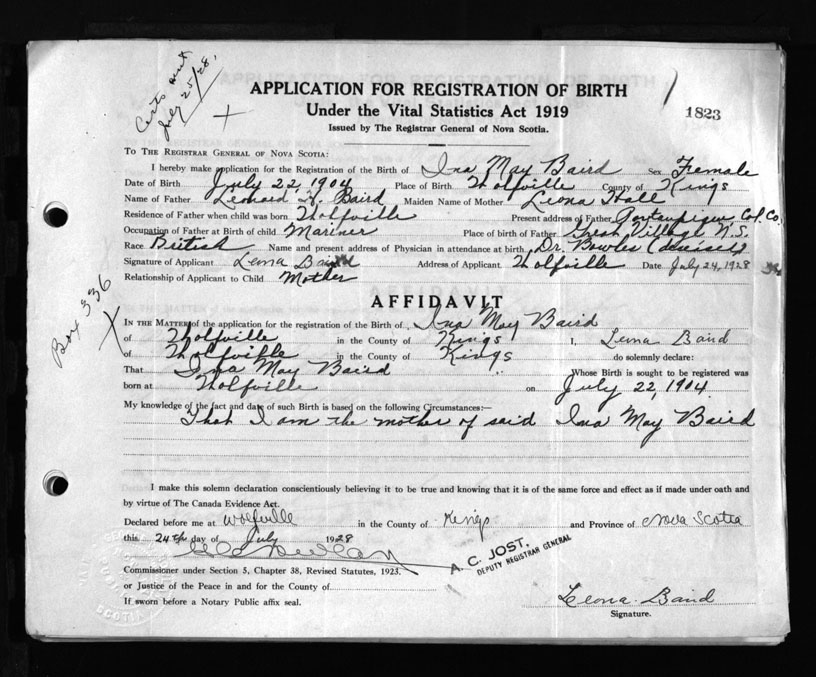 Certs sent
July 25/28.
APPLICATION FOR REGISTRATION OF BIRTH
Under the Vital Statistics Act 1919
Issued by The Registrar General of Nova Scotia.
1823
To The Registrar General of Nova Scotia:
I hereby make application for the Registration of the Birth of Ina May Baird Sex Female
Date of Birth July 22, 1904 Place of Birth Wolfville County of Kings
Name of Father Leonard A. Baird Maiden Name of Mother Leona Hall
Residence of Father when child was born Wolfville Present address of Father Portaupique Col. Co.
Occupation of Father at Birth of child Mariner Place of birth of Father Great Village N.S.
Race British Name and present address of Physician in attendance at birth Dr. Bowles (deceised)
Signature of Applicant Leona Baird Address of Applicant Wolfville Date July 24, 1928
Relationship of Applicant to Child Mother
Box 336
AFFIDAVIT
In the Matter of the application for the registration of the Birth of Ina May Baird
of Wolfville in the County of Kings I, Leona Baird
of Wolfville in the County of Kings do solemnly declare:
That Ina May Baird Whose Birth is sought to be registered was
born at Wolfville on July 22, 1904.
My knowledge of the fact and date of such Birth is based on the following Circumstances:—
That I am the mother of said Ina May Baird
I make this solemn declaration conscientiously believing it to be true and knowing that it is of the same force and effect as if made under oath and
by virtue of The Canada Evidence Act.
Declared before me at Wolfville in the County of Kings and Province of Nova Scotia
this 24th day of July 1928
A. C. JOST.
DEPUTY REGISTRAR GENERAL
Commissioner under Section 5, Chapter 38, Revised Statutes, 1923.
or Justice of the Peace in and for the County of
If sworn before a Notary Public affix seal.
Leona Baird
Signature.